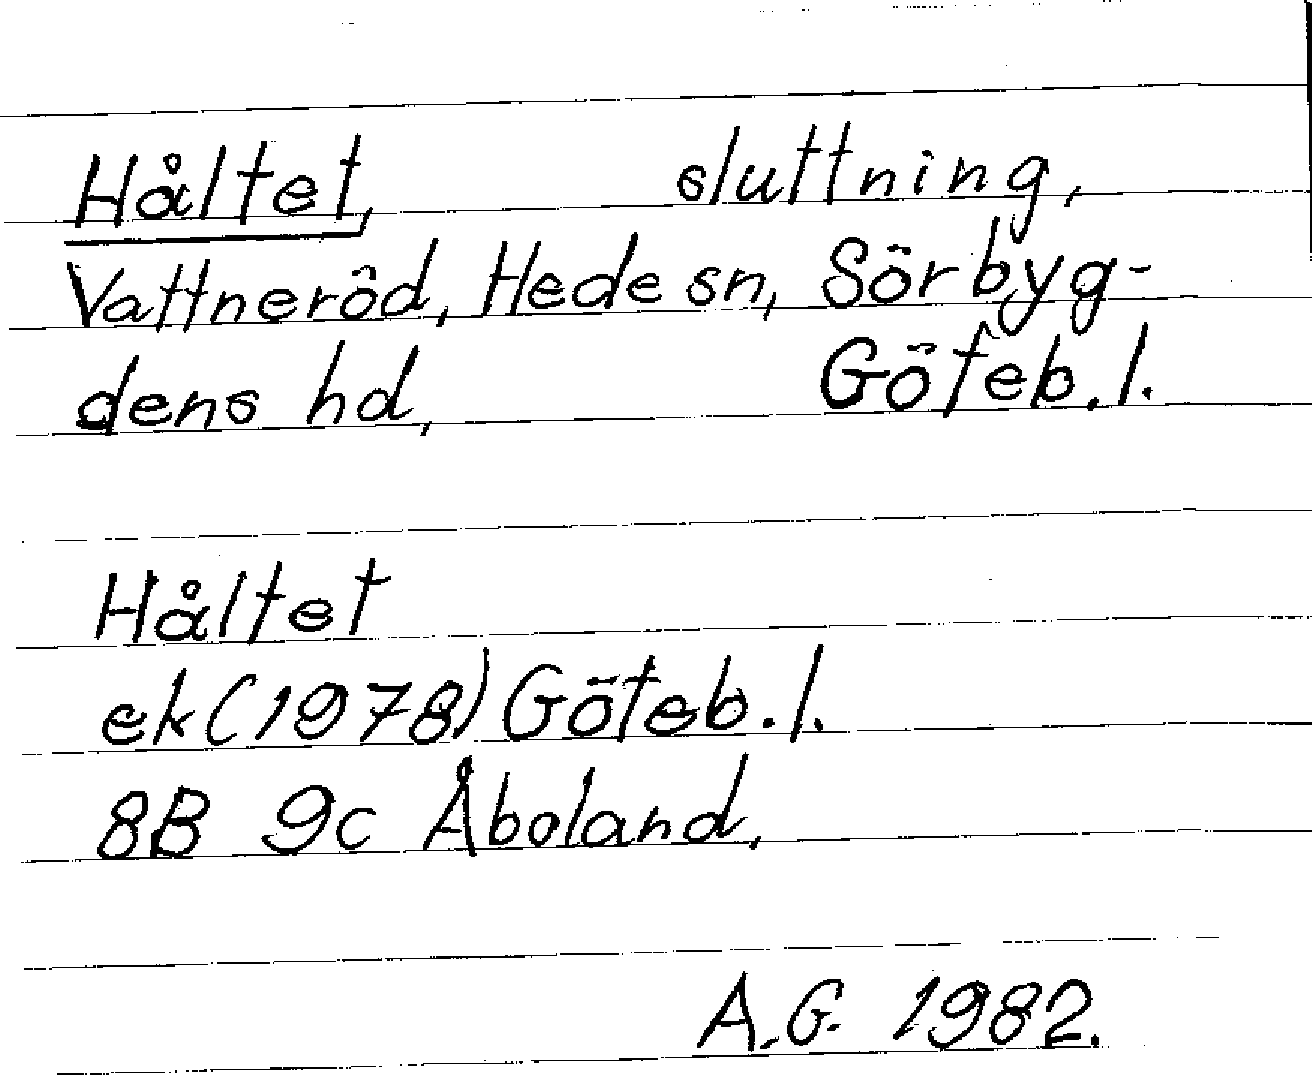 Håltet, sluttning,
Vattneröd, Hede sn, Sörbyg-
dens hd, Göteb. l.
Håltet
ek (1978) Göteb. l.
8B 9c Åboland,
A.G. 1982.